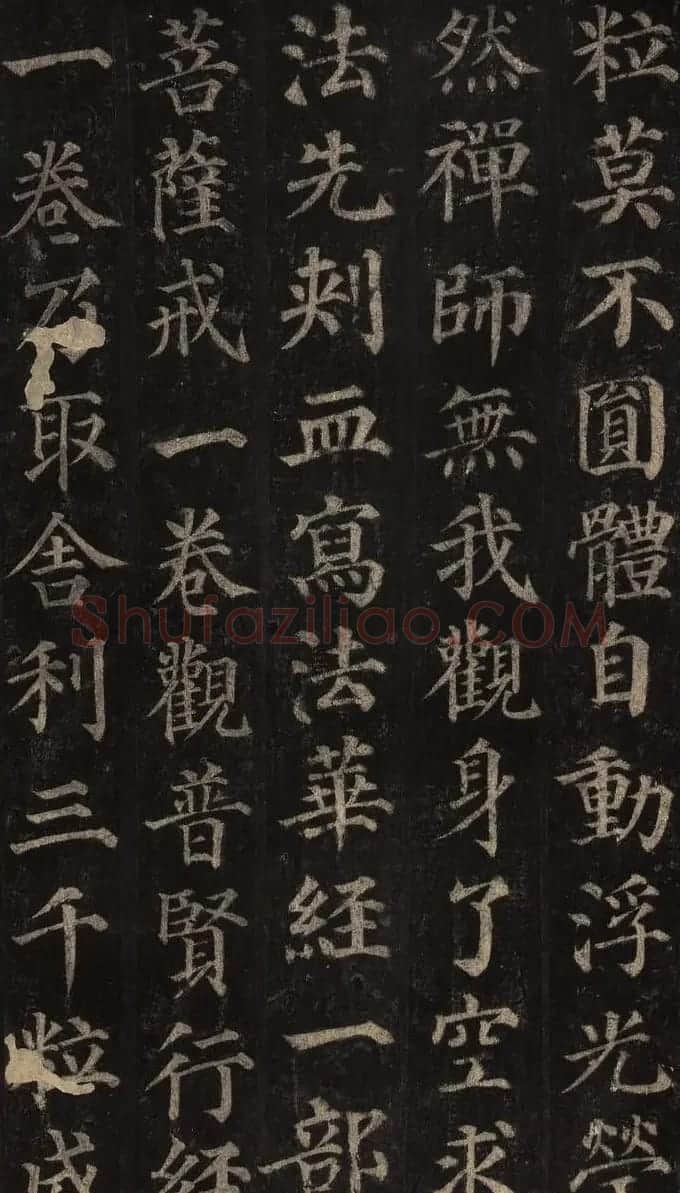 粒莫不圎體自動浮光瑩
然禪師無我觀身了空求
法先刾血寫法華経一部
菩薩戒一卷觀普賢行経
一卷乃取舍利三千粒盛
Shufaziliao.COM